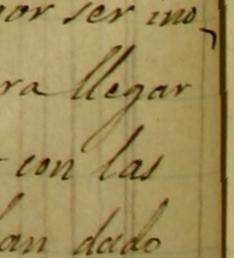 por ser ino
ra llegar
con las
han dado